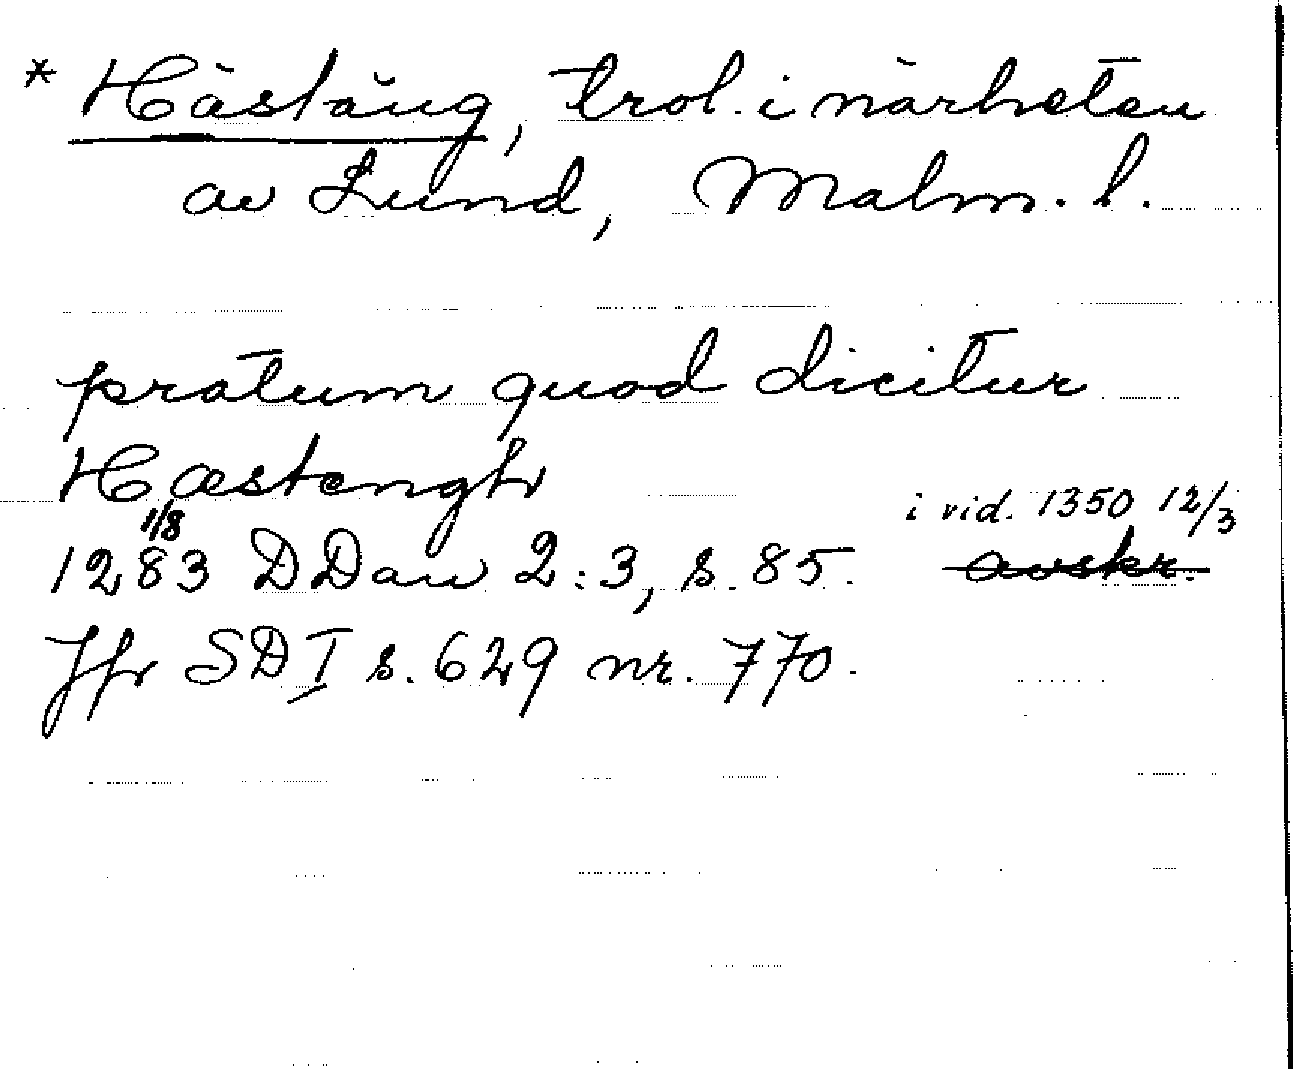 * Hästäng, trol. i närheten
av Lund, Malm. l.
pratum quod dicitur
Hæstengh
i vid. 1350 12/3
1/8
1283 DDan 2:3, s. 85. avskr.
Jfr SD I s. 629 nr. 770.